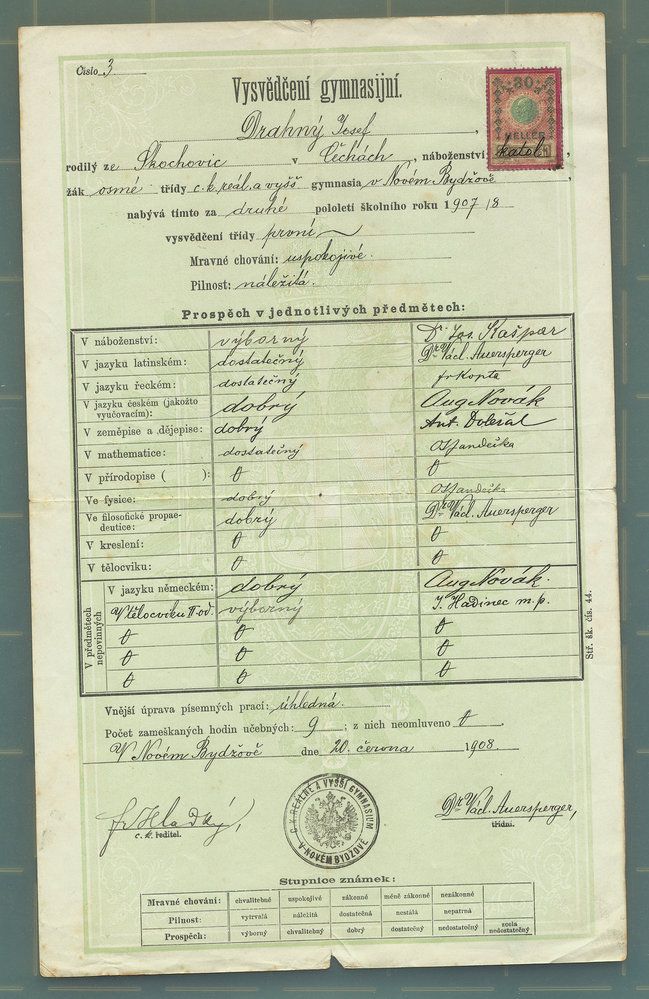 Číslo 3.
Vysvědčení gymnasijní.
30
HELLER
Drahný Josef,
rodilý ze Skochovic v Čechách, náboženství: katol.,
žák osmé třídy c. k. reál. a vyšš gymnasia v Novém Bydžově,
nabývá tímto za druhé pololetí školního roku 1907/8
vysvědčení třídy první
Mravné chování: uspokojivé.
Pilnost: náležitá.
Prospěch v jednotlivých předmětech:
V náboženství: výborný Dr. Jos. Kašpar
V jazyku latinském: dostatečný Dr. Václ. Auersperger
V jazyku řeckém: dostatečný fr Kopta
V jazyku českém (jakožto vyučovacím): dobrý Aug Novák
V zeměpise a dějepise: dobrý Ant. Doležal
V mathematice: dostatečný
V přírodopise ( ): 0 0
Ve fysice: dobrý
Ve filosofické propae-deutice: dobrý Dr. Václ. Auersperger
V kreslení: 0 0
V tělocviku: 0 0
V předmětech nepovinných
V jazyku německém: dobrý Aug Novák.
V tělocviku II od. výborný J. Hadinec m. p.
0 0 0
0 0 0
0 0 0
Stř. šk. čís. 44.
Vnější úprava písemných prací: úhledná.
Počet zameškaných hodin učebných: 9; z nich neomluveno 0.
V Novém Bydžově dne 20. června 1908
fr Hladký,
c. k. ředitel.
C. K. REÁLNÉ A VYŠŠÍ GYMNASIUM V NOVÉM BYDŽOVĚ
Dr. Václ. Auersperger,
třídní.
Stupnice známek:
Mravné chování: chvalitebné uspokojivé zákonné méně zákonné nezákonné
Pilnost: vytrvalá náležitá dostatečná nestálá nepatrná
Prospěch: výborný chvalitebný dobrý dostatečný nedostatečný zcela nedostatečný